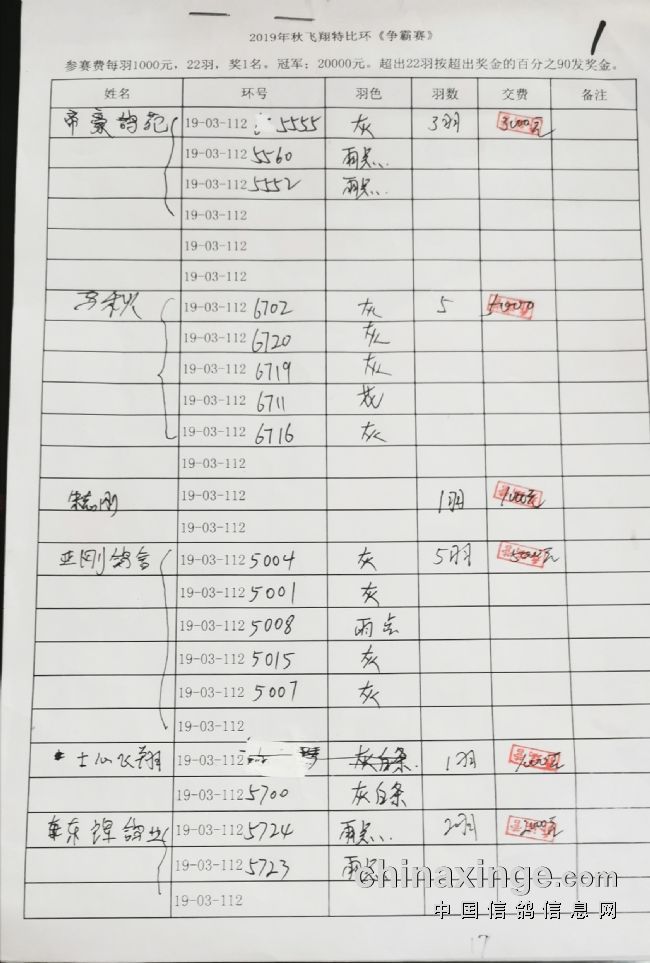 2019年秋飞翔特比环《争霸赛》
1
参赛费每羽1000元，22羽，奖1名。冠军：20000元。超出22羽按超出奖金的百分之90发奖金。
姓名 环号 羽色 羽数 交费 备注
帝豪鸽苑 19-03-112 5555 灰 3羽 3000元
19-03-112 5560 雨点
19-03-112 5552 雨点
19-03-112
19-03-112
19-03-112
19-03-112 6702 灰 5 5000
19-03-112 6720 灰
19-03-112 6719 灰
19-03-112 6711
19-03-112 6716 灰
19-03-112
19-03-112 1羽 1000元
19-03-112
亚刚鸽舍 19-03-112 5004 灰 5羽 5000元
19-03-112 5001 灰
19-03-112 5008 雨点
19-03-112 5015 灰
19-03-112 5007 灰
19-03-112
飞翔 19-03-112 灰白条 1羽 1000元
19-03-112 5700 灰白条
19-03-112 5724 雨点 2羽 2000元
19-03-112 5723 雨点
19-03-112
chinaxinge.com
中国信鸽信息网
17